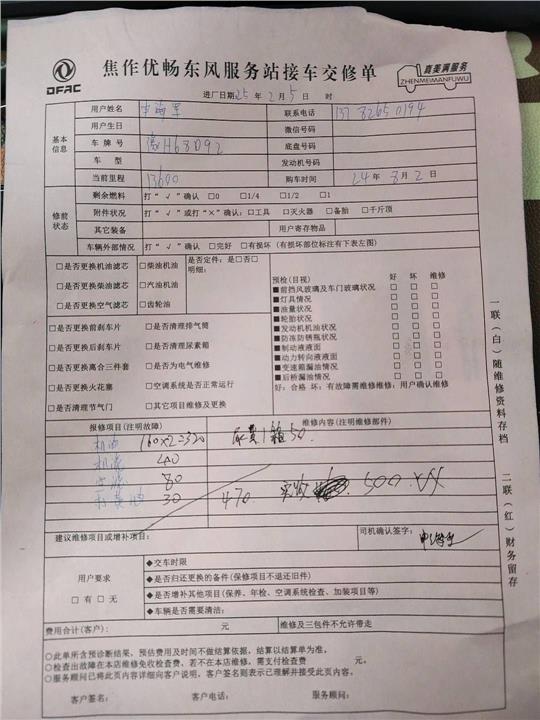 DFAC
焦作优畅东风服务站接车交修单
真美满服务
ZHENMEIMANFUWU
进厂日期25年2月5日 时
基本信息
用户姓名 联系电话 137 8265 0194
用户生日 微信号码
车牌号 豫H68D92 底盘号码
车型 发动机号码
当前里程 13600 购车时间 24年8月2日
修前状态
剩余燃料 打“√”确认 □0 □1/4 □1/2 □1
附件状况 打“√”或打“×”确认：□工具 □灭火器 □备胎 □千斤顶
其它装备 用户寄存物品
车辆外部情况 打“√”确认 □完好 □有损坏（有损坏部位标注有下表左图）
□是否更换机油滤芯 □柴油机油 是否定件：是□否□
明细：
□是否更换柴油滤芯 □汽油机油
□是否更换空气滤芯 □齿轮油
□是否更换前刹车片 □是否清理排气筒
□是否更换后刹车片 □是否清理尿素箱
□是否更换离合三件套 □是否为电气维修
□是否更换火花塞 □空调系统是否正常运行
□是否清理节气门 □其它项目维修及更换
预检(目视) 好 坏 维修
■前挡风玻璃及车门玻璃状况 □ □ □
■灯具情况 □ □ □
■油量状况 □ □ □
■轮胎状况 □ □ □
■发动机机油状况 □ □ □
■防冻防锈瓶状况 □ □ □
■制动液液面 □ □ □
■动力转向液液面 □ □ □
■变速箱漏油情况 □ □ □
■后桥漏油情况 □ □ □
好：合格 坏：有故障需维修维修：用户确认维修
报修项目(注明故障) 维修内容(注明维修部件)
机油 160×2=320 1箱50.
机滤 40
空滤 80
30 470. 实收 500.
建议维修项目或增补项目： 司机确认签字：
用户要求
□有 □无
◆交车时限
◆是否归还更换的备件(保修项目不退还旧件)
◆是否增补其他项目(保养、年检、空调系统检查、加装项目等)
◆车辆是否需要清洁：
费用合计(客户)： 元 维修及三包件不允许带走
○此单所含预诊断结果，预估费用及时间不做结算依据，结算以结算单为准。
○检查出故障在本店维修免收检查费，若不在本店维修，需支付检查费 元。
○服务顾问已将此页内容详细向客户说明，客户签名则表示已理解并接受此页内容。
客户签名： 客户电话： 服务顾问：
一联(白)随维修资料存档
二联(红)财务留存